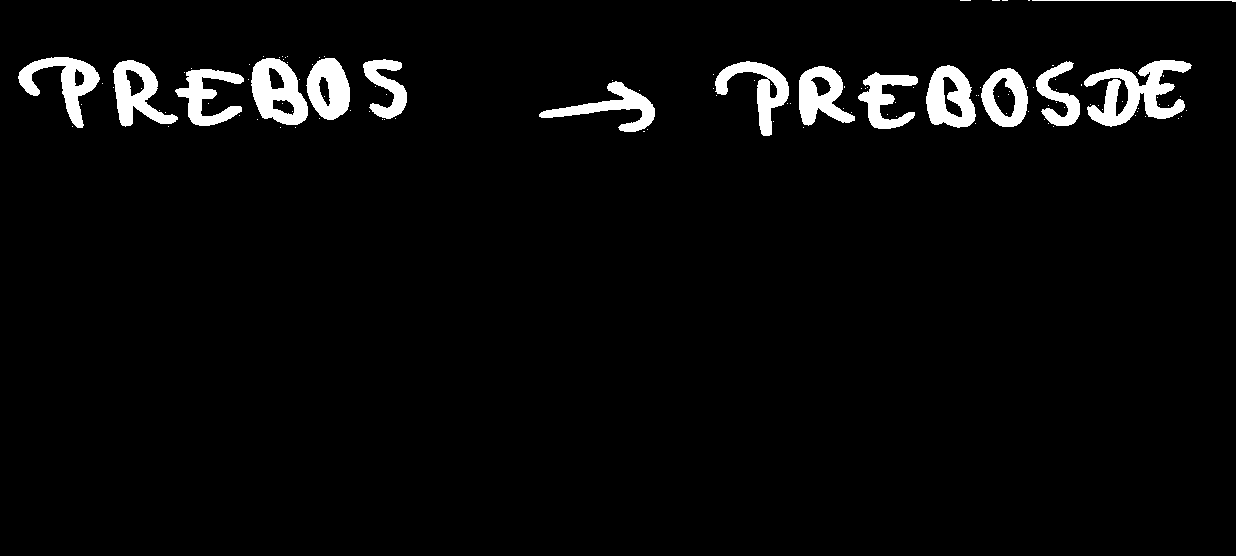 PREBOS → PREBOSDE